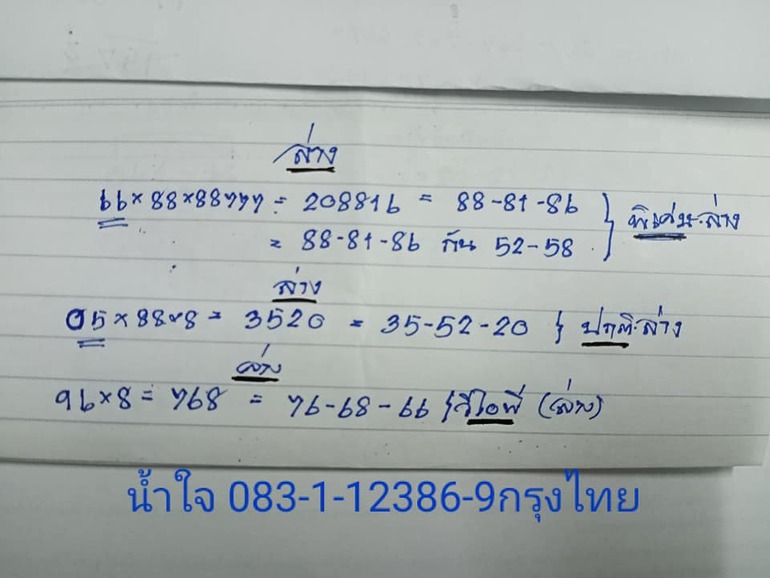 ล่าง
66×88×88777 = 208816 = 88-81-86 } พิเศษ-ล่าง
= 88-81-86 กัน 52-58
ล่าง
05×88×8 = 3520 = 35-52-20 } ปกติ-ล่าง
ล่าง
96×8 = 768 = 76-68-66 } วีไอพี (ล่าง)
น้ำใจ 083-1-12386-9กรุงไทย